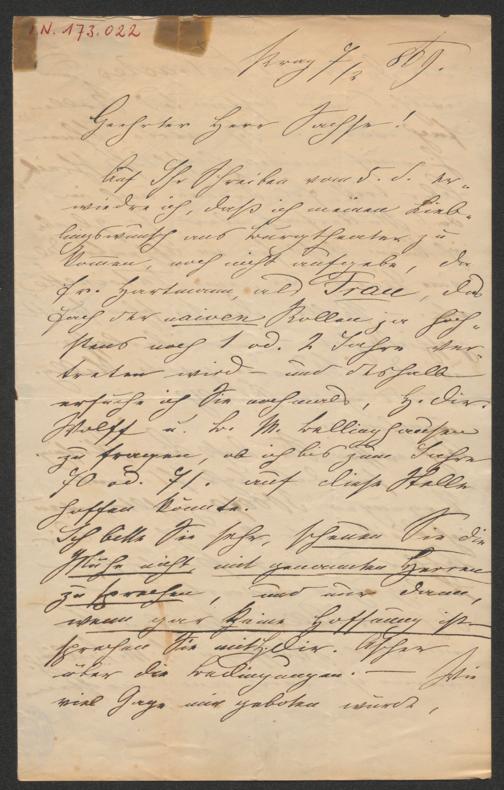 I.N. 173.022
Prag 7/2 869.
Geehrter Herr Sachse!
Auf Ihr Schreiben vom 5. d. er-
wiedre ich, daß ich meinen Lieb-
lingswunsch ans Burgtheater zu
komen, noch nicht aufgebe, da
Fr. Hartmann, als Frau, das
Fach der naiven Rollen ja höch-
stens noch 1 od. 2 Jahre ver-
treten wird – und deshalb
ersuche ich Sie nochmals, H. Dir.
Wolff u. B. M. Bellinghausen
zu fragen, ob ich bis zum Jahre
70 od. 71. auf diese Stelle
hoffen könnte.
Ich bitte Sie sehr, scheuen Sie die
Mühe nicht, mit genannten Herren
zu sprechen, und nur dann,
wenn gar keine Hoffnung ist
sprechen Sie mit H. Dir. Ascher
über die Bedingungen. — Wie
viel Gage mir geboten würde,